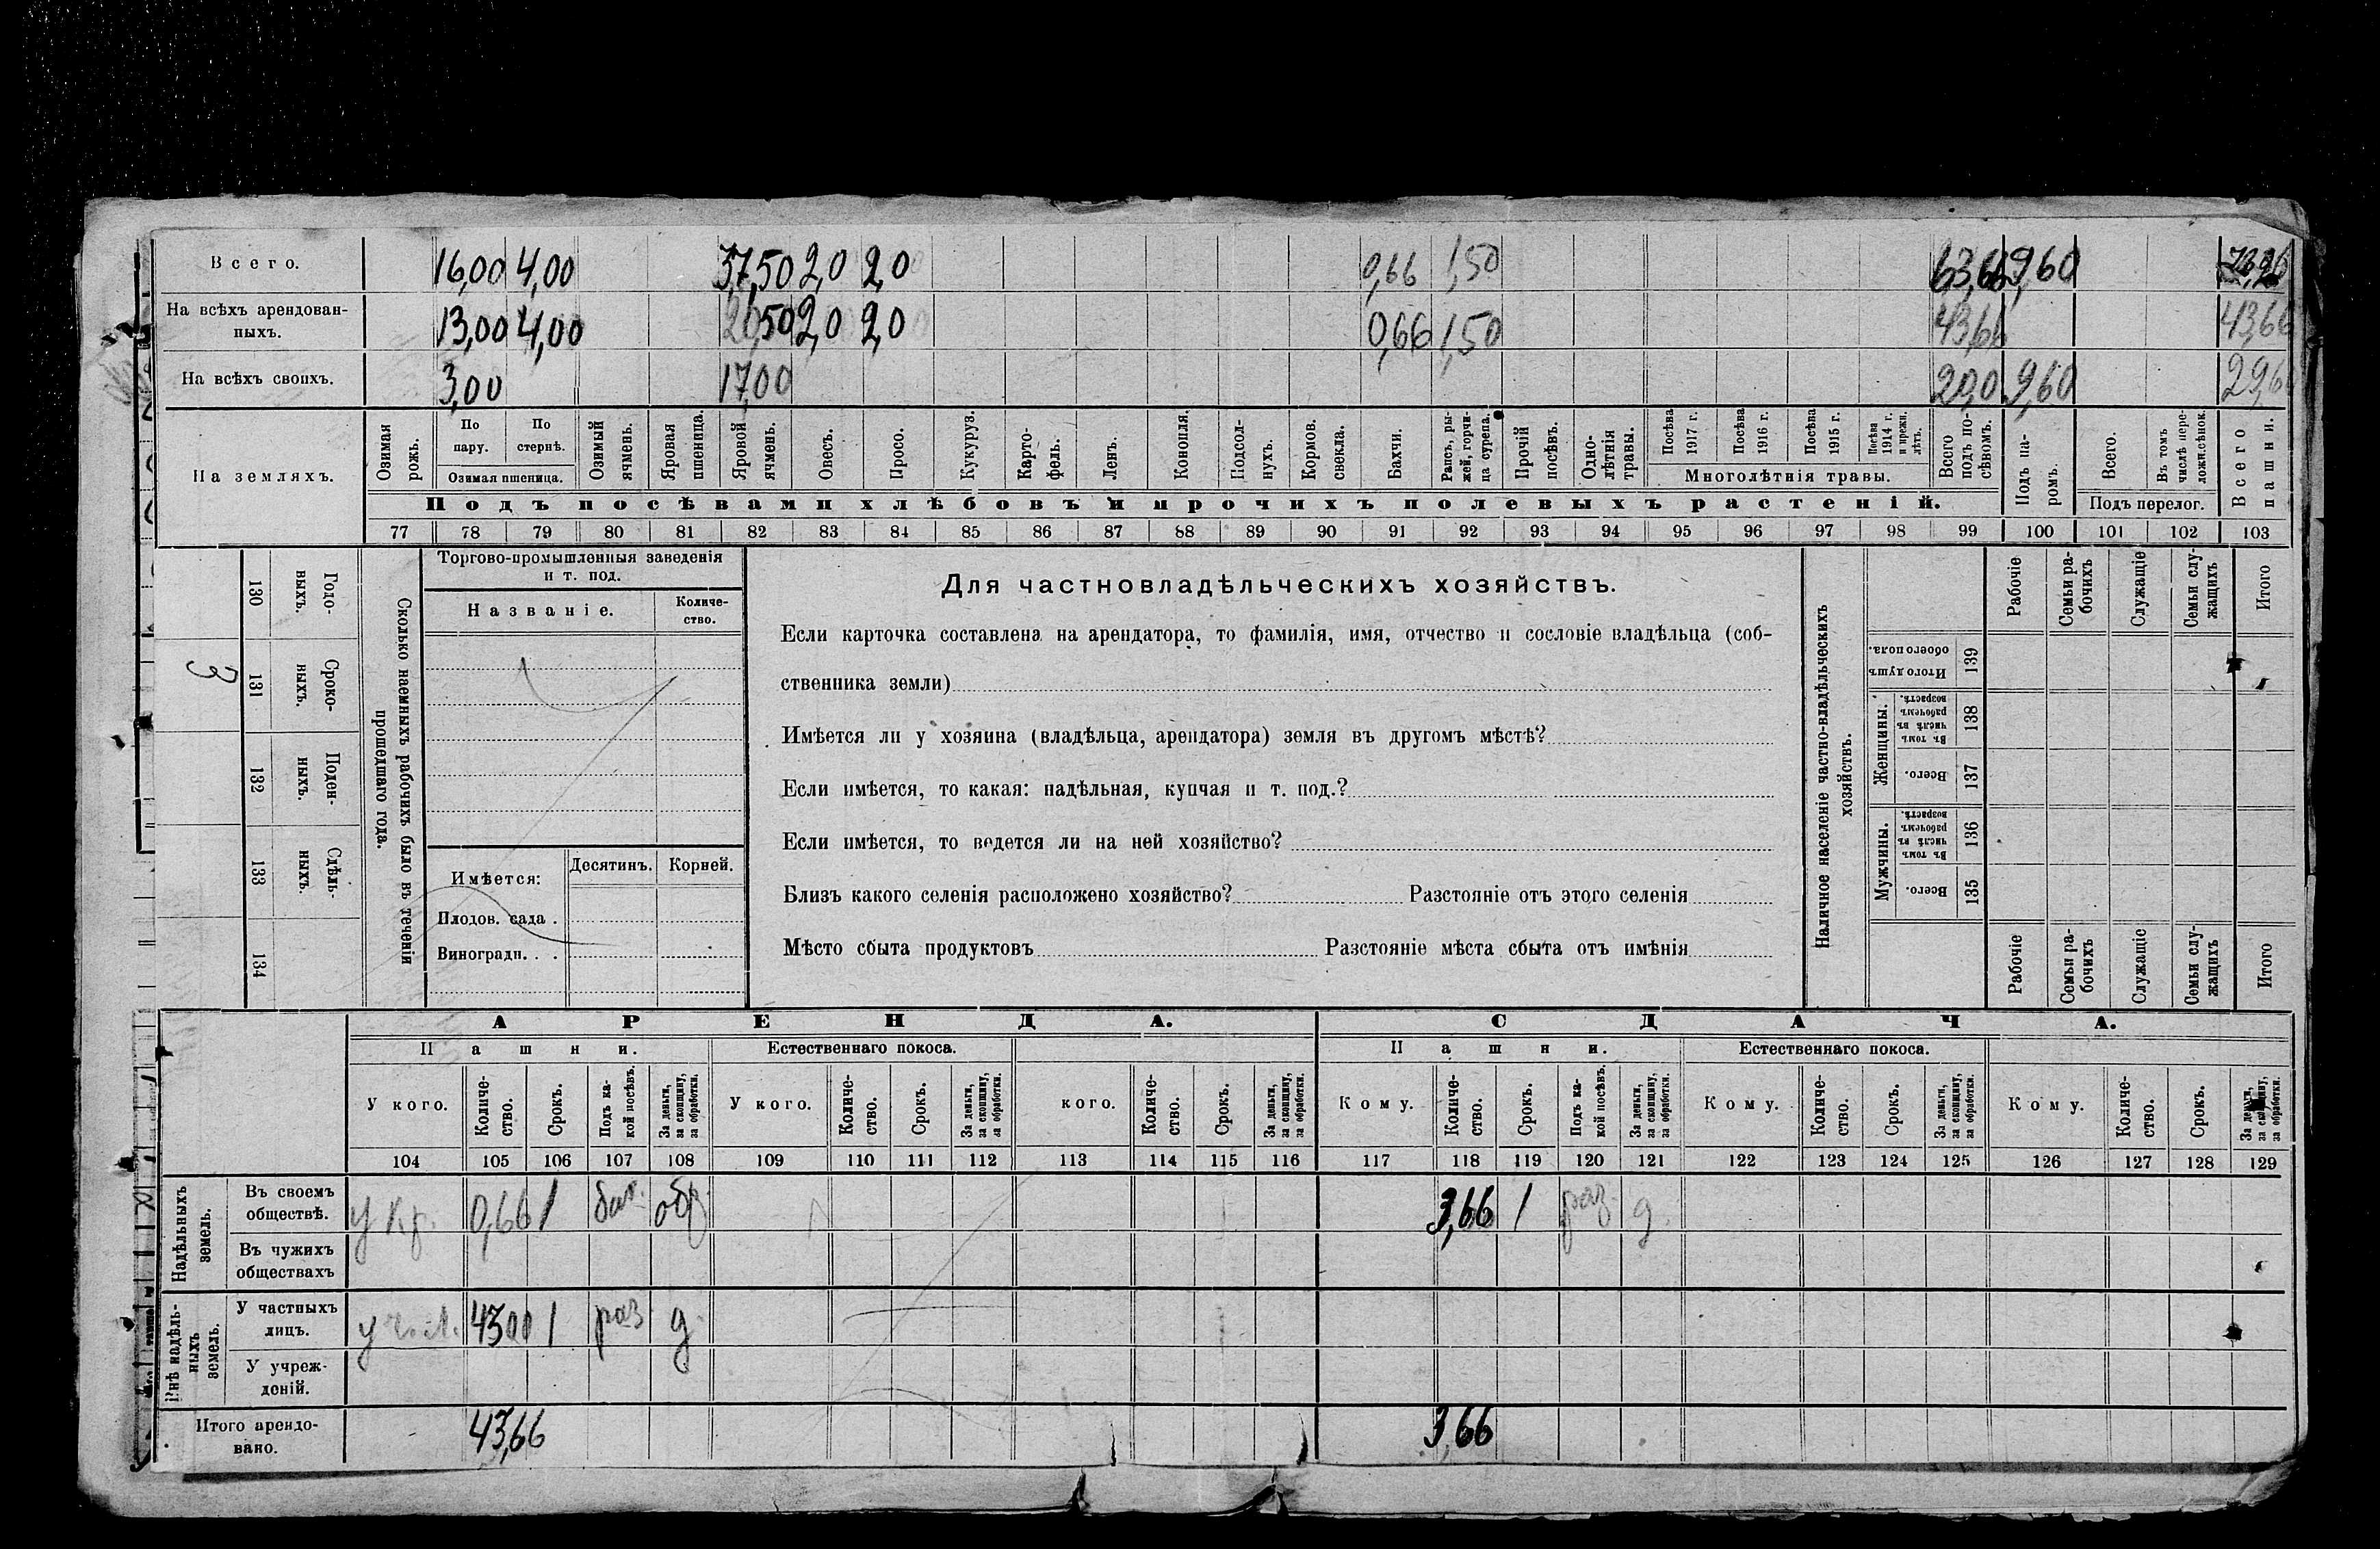 Всего. 16,00 4,00 37,50 2,0 2,0 0,66 1,50 63,66 9,60
На всѣхъ арендован-
ныхъ. 13,00 4,00 20,50 2,0 2,0 0,66 1,50 43,66 43,66
На всѣхъ своихъ. 3,00 17,00 20,0 9,60 29,6
На земляхъ.
Озимая рожь.
По пару.
По стернѣ.
Озимая пшеница.
Озимый ячмень.
Яровая пшеница.
Яровой ячмень.
Овесъ.
Просо.
Кукуруз.
Карто-
фель.
Ленъ.
Конопля.
Подсол-
нухъ.
Кормов.
свекла.
Бахчи.
Рапсъ, ры-
жей, горчи-
ца сурепа.
Прочій
посѣвъ.
Одно-
лѣтнія
травы.
Посѣва
1917 г.
Посѣва
1916 г.
Посѣва
1915 г.
Посѣва
1914 г.
и прежн.
лѣтъ.
Многолѣтнія травы.
Всего
подъ по-
сѣвомъ.
Подъ па-
ромъ.
Всего.
Въ томъ
числѣ пере-
ложн.сѣнок.
Подъ перелог.
Всего
пашни.
Подъ посѣвами хлѣбовъ и прочихъ полевыхъ растеній.
77 78 79 80 81 82 83 84 85 86 87 88 89 90 91 92 93 94 95 96 97 98 99 100 101 102 103
130
Годо-
выхъ.
3
131
Сроко-
выхъ.
132
Поден-
ныхъ.
133
Сдѣль-
ныхъ.
134
Сколько наемныхъ рабочихъ было въ теченіи
прошедшаго года.
Торгово-промышленныя заведенія
и т. под.
Названіе.
Количе-
ство.
Имѣется:
Десятинъ.
Корней.
Плодов. сада .
Виноградн. . .
Для частновладѣльческихъ хозяйствъ.
Если карточка составлена на арендатора, то фамилія, имя, отчество и сословіе владѣльца (соб-
ственника земли)
Имѣется ли у хозяина (владѣльца, арендатора) земля въ другомъ мѣстѣ?
Если имѣется, то какая: надѣльная, купчая и т. под.?
Если имѣется, то ведется ли на ней хозяйство?
Близъ какого селенія расположено хозяйство? Разстояніе отъ этого селенія
Мѣсто сбыта продуктовъ Разстояніе мѣста сбыта отъ имѣнія
Наличное населеніе частно-владѣльческихъ
хозяйствъ.
Рабочіе
Семьи ра-
бочихъ
Служащіе
Семьи слу-
жащихъ
Итого
Итого душъ
обоего пола.
139
Женщины.
Въ томъ
числѣ въ
рабочемъ
возрастѣ.
138
Всего.
137
Мужчины.
Въ томъ
числѣ въ
рабочемъ
возрастѣ.
136
Всего.
135
Рабочіе
Семьи ра-
бочихъ
Служащіе
Семьи слу-
жащихъ
Итого
АРЕНДА.
СДАЧА.
Пашни.
Естественнаго покоса.
Пашни.
Естественнаго покоса.
У кого.
Количе-
ство.
Срокъ.
Подъ ка-
кой посѣвъ.
За деньги,
за скопщину,
за обработки.
У кого.
Количе-
ство.
Срокъ.
За деньги,
за скопщину,
за обработки.
кого.
Количе-
ство.
Срокъ.
За деньги,
за скопщину,
за обработки.
Кому.
Количе-
ство.
Срокъ.
Подъ ка-
кой посѣвъ.
За деньги,
за скопщину,
за обработки.
Кому.
Количе-
ство.
Срокъ.
За деньги,
за скопщину,
за обработки.
Кому.
Количе-
ство.
Срокъ.
За деньги,
за скопщину,
за обработки.
104 105 106 107 108 109 110 111 112 113 114 115 116 117 118 119 120 121 122 123 124 125 126 127 128 129
Надѣльныхъ
земель.
Въ своемъ
обществѣ. у кр. 0,66 1 бах. обр. 3,66 1 раз. д.
Въ чужихъ
обществахъ
Внѣ надѣль-
ныхъ
земель.
У частныхъ
лицъ. 43,00 1 раз. д.
У учреж-
деній.
Итого арендо-
вано. 43,66 3,66